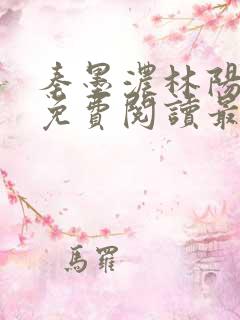 秦墨濃林陽
免費閱讀最
馬羅